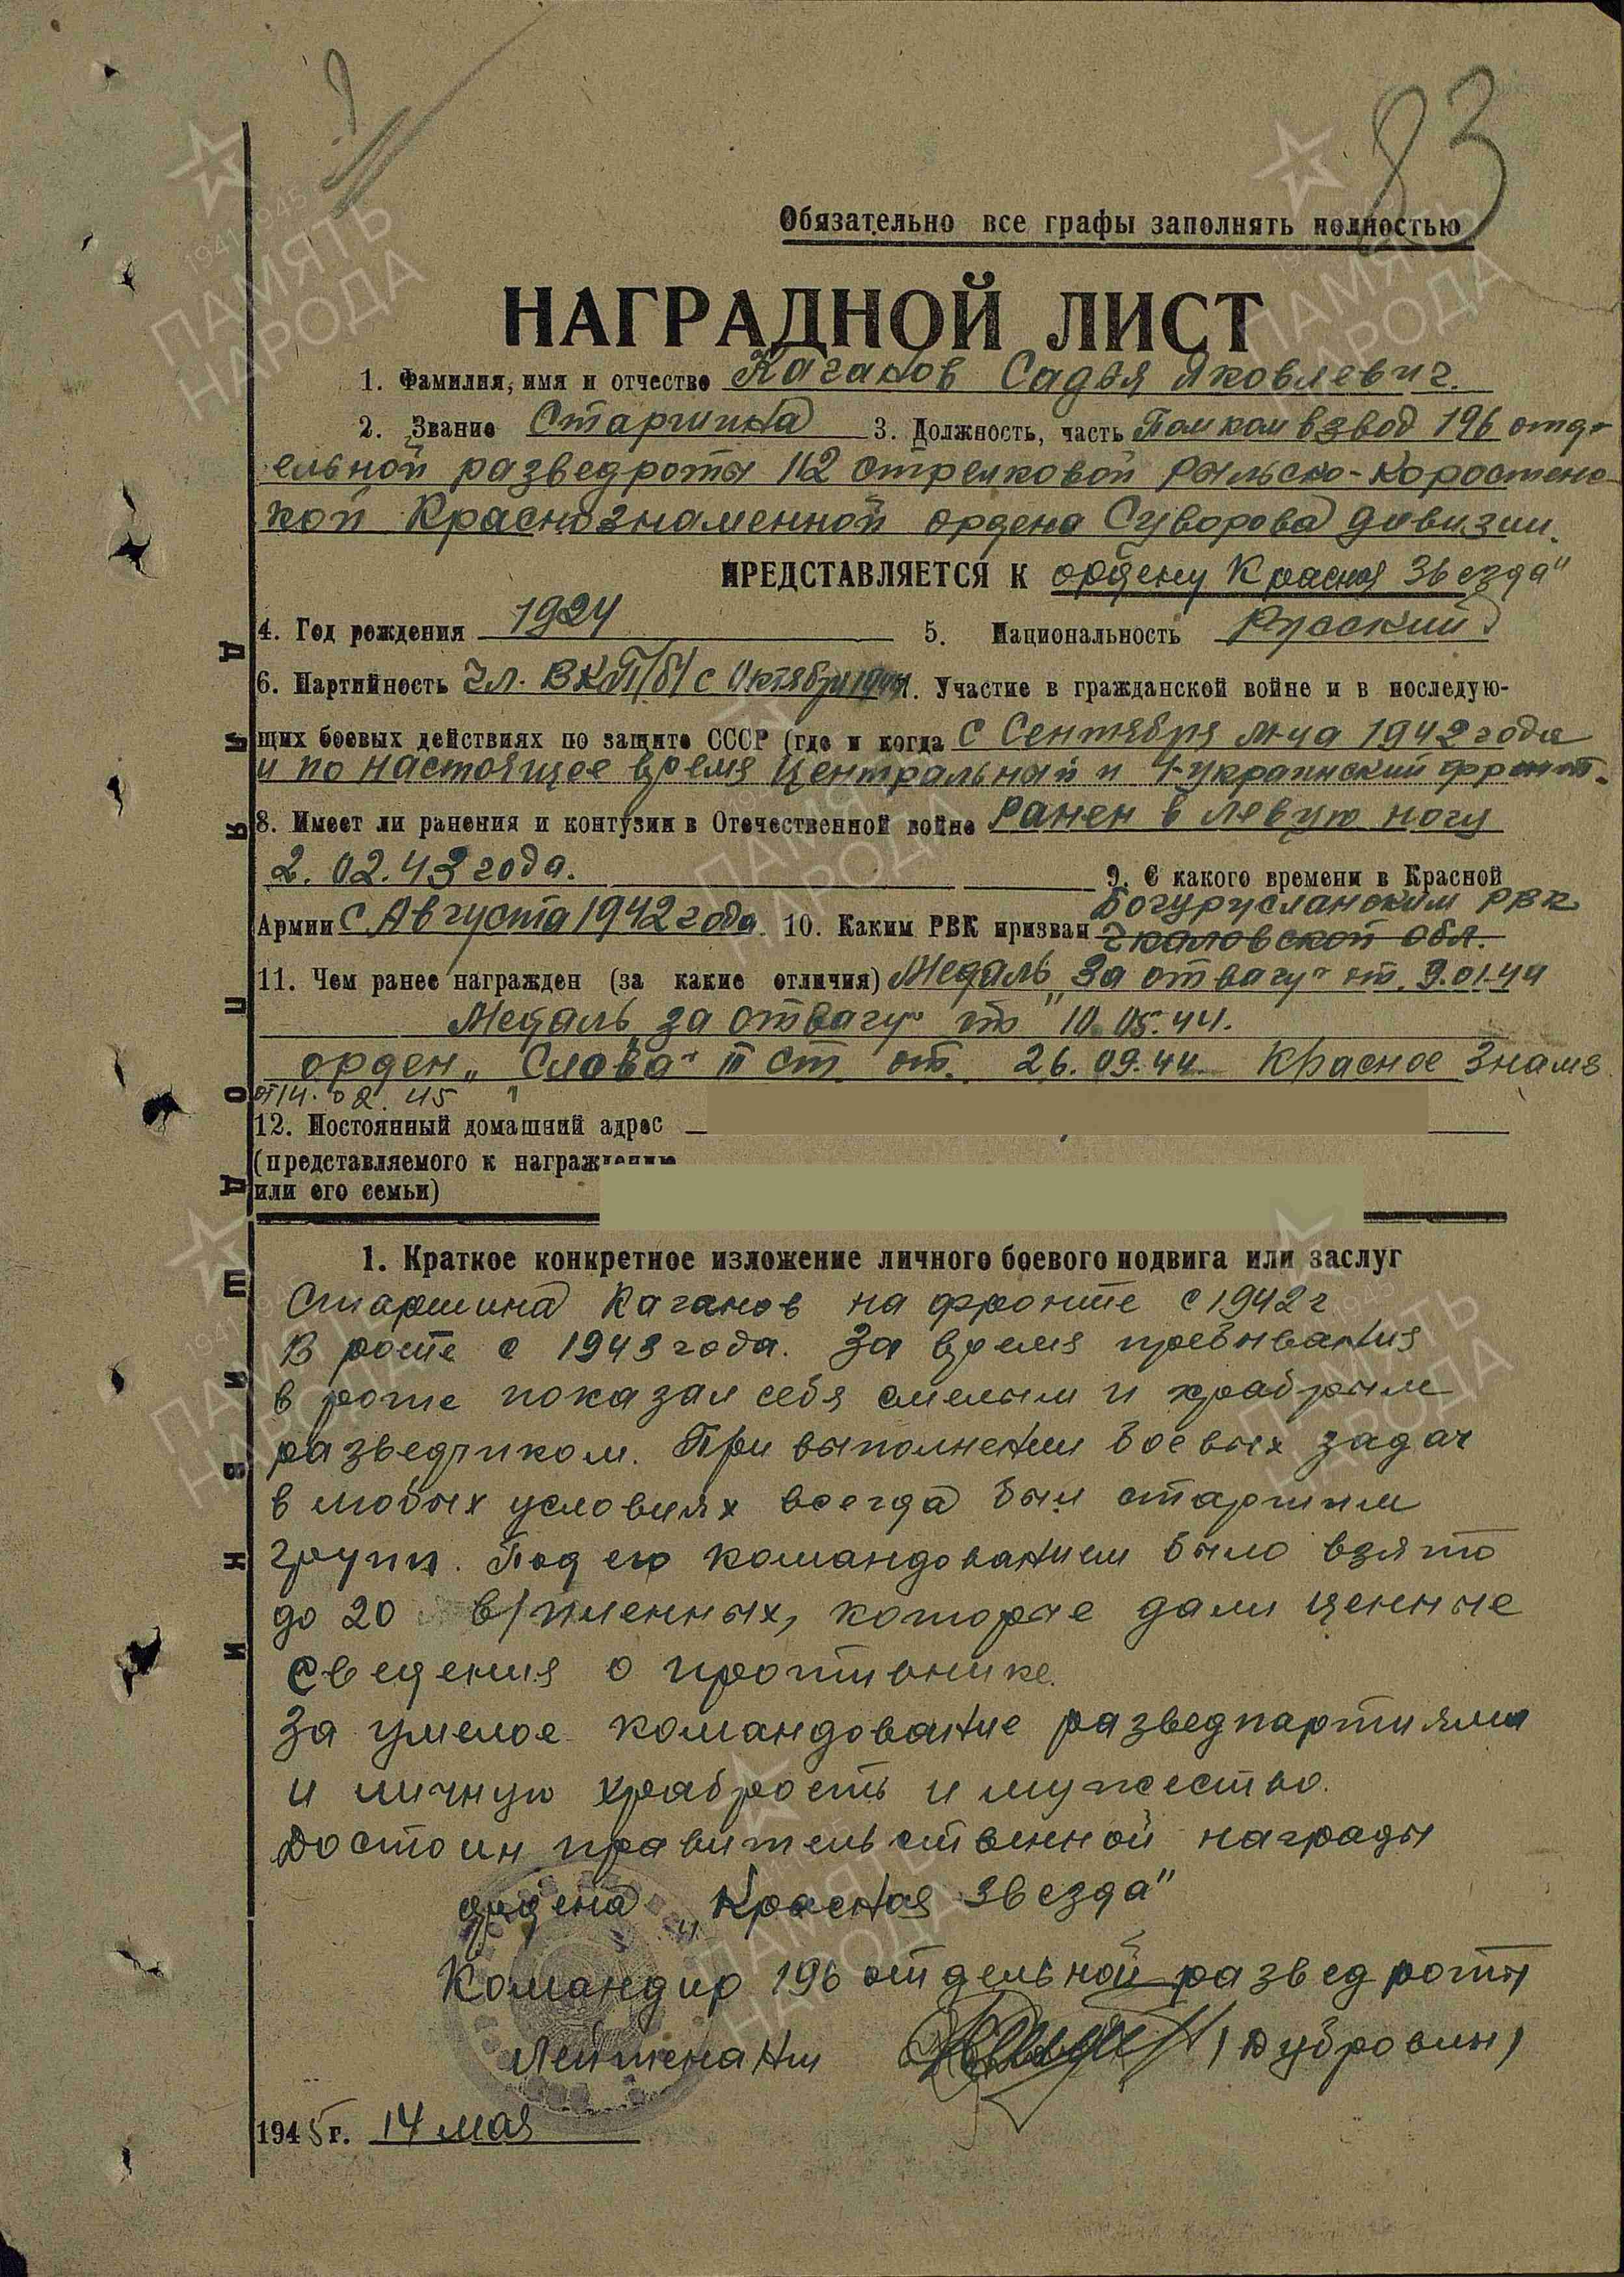 83
Обязательно все графы заполнять полностью
НАГРАДНОЙ ЛИСТ
1. Фамилия, имя и отчество Каганов Садья Яковлевич.
2. Звание Старшина 3. Должность, часть Помкомвзвод 196 отде-
ельной разведроты 112 стрелковой Рыльско-Коростенс-
кой Краснознаменной ордена Суворова дивизии.
ПРЕДСТАВЛЯЕТСЯ К ордену Красная Звезда"
4. Год рождения 1924 5. Национальность Русский
6. Партийность Чл. ВКП/б/ с Октября 1944 7. Участие в гражданской войне и в последую-
щих боевых действиях по защите СССР (где и когда С Сентября м-ца 1942 года
и по настоящее время Центральный и 1-Украинский фронт.
8. Имеет ли ранения и контузии в Отечественной войне Ранен в левую ногу
2.02.43 года. 9. С какого времени в Красной
Армии С Августа 1942 года 10. Каким РВК призван Богурусланским РВК
Чкаловской обл.
11. Чем ранее награжден (за какие отличия) Медаль За отвагу" от 9.01.44
Медаль за отвагу" от 10.05.44.
орден „Слава" III ст от. 26.09.44 Красное Знамя
от 14.02.45
12. Постоянный домашний адрес
(представляемого к награждению
или его семьи)
1. Краткое конкретное изложение личного боевого подвига или заслуг
Старшина Каганов на фронте с 1942 г
В роте с 1943 года. За время пребывания
в роте показал себя смелым и храбрым
разведчиком. При выполнении боевых задач
в любых условиях всегда был старшим
групп. Под его командованием было взято
до 20 в/пленных, которые дали ценные
сведения о противнике.
За умелое командование разведпартиями
и личную храбрость и мужество.
Достоин правительственной награды
ордена „Красная Звезда"
Командир 196 отдельной разведроты
Лейтенант /Дубровин/
1945 г. 14 мая
Д Ы Р О Д Л Я П О Д Ш И В К И
ПАМЯТЬ НАРОДА
1941 1945